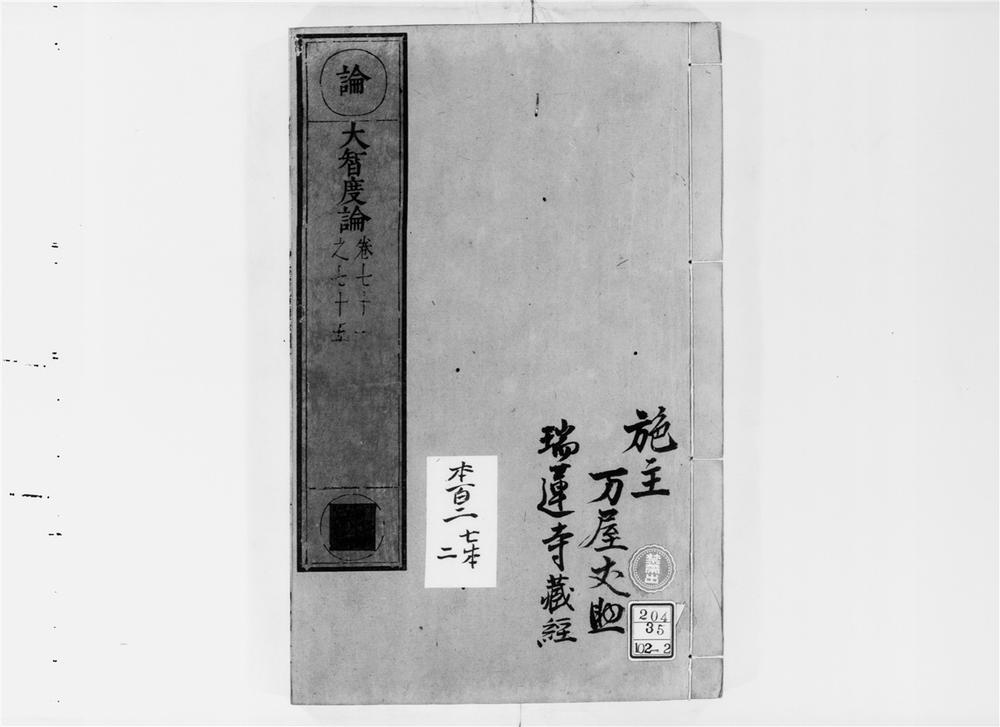 論
大智度論
卷七十一
之七十五
施主
万屋丈助
瑞蓮寺藏經
本百二
七本
二
禁出
204
35
102-2